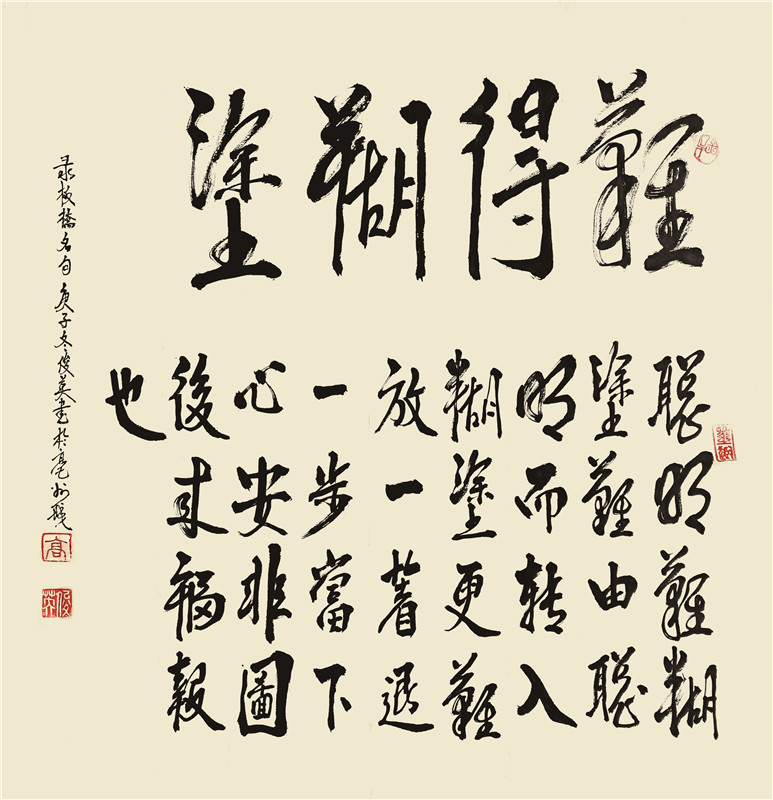 難得糊塗
聰明難糊
塗難由聰
明而轉入
糊塗更難
放一著退
一步當下
心安非圖
後来福報
也
录板橋名句 庚子冬俊英書於亳州
高
俊英